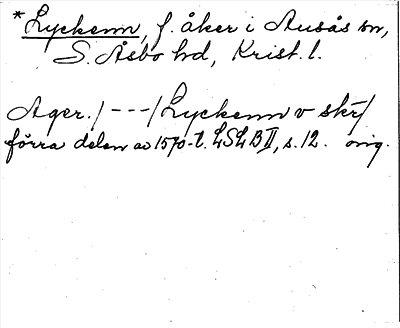 *Lyckenn, f. åker i Ausås sn,
S. Åsbo hd, Krist. l.
Ager. / - - - / Lyckenn v skr /
förra delen av 1570-t. LSLB II, s. 12. orig.